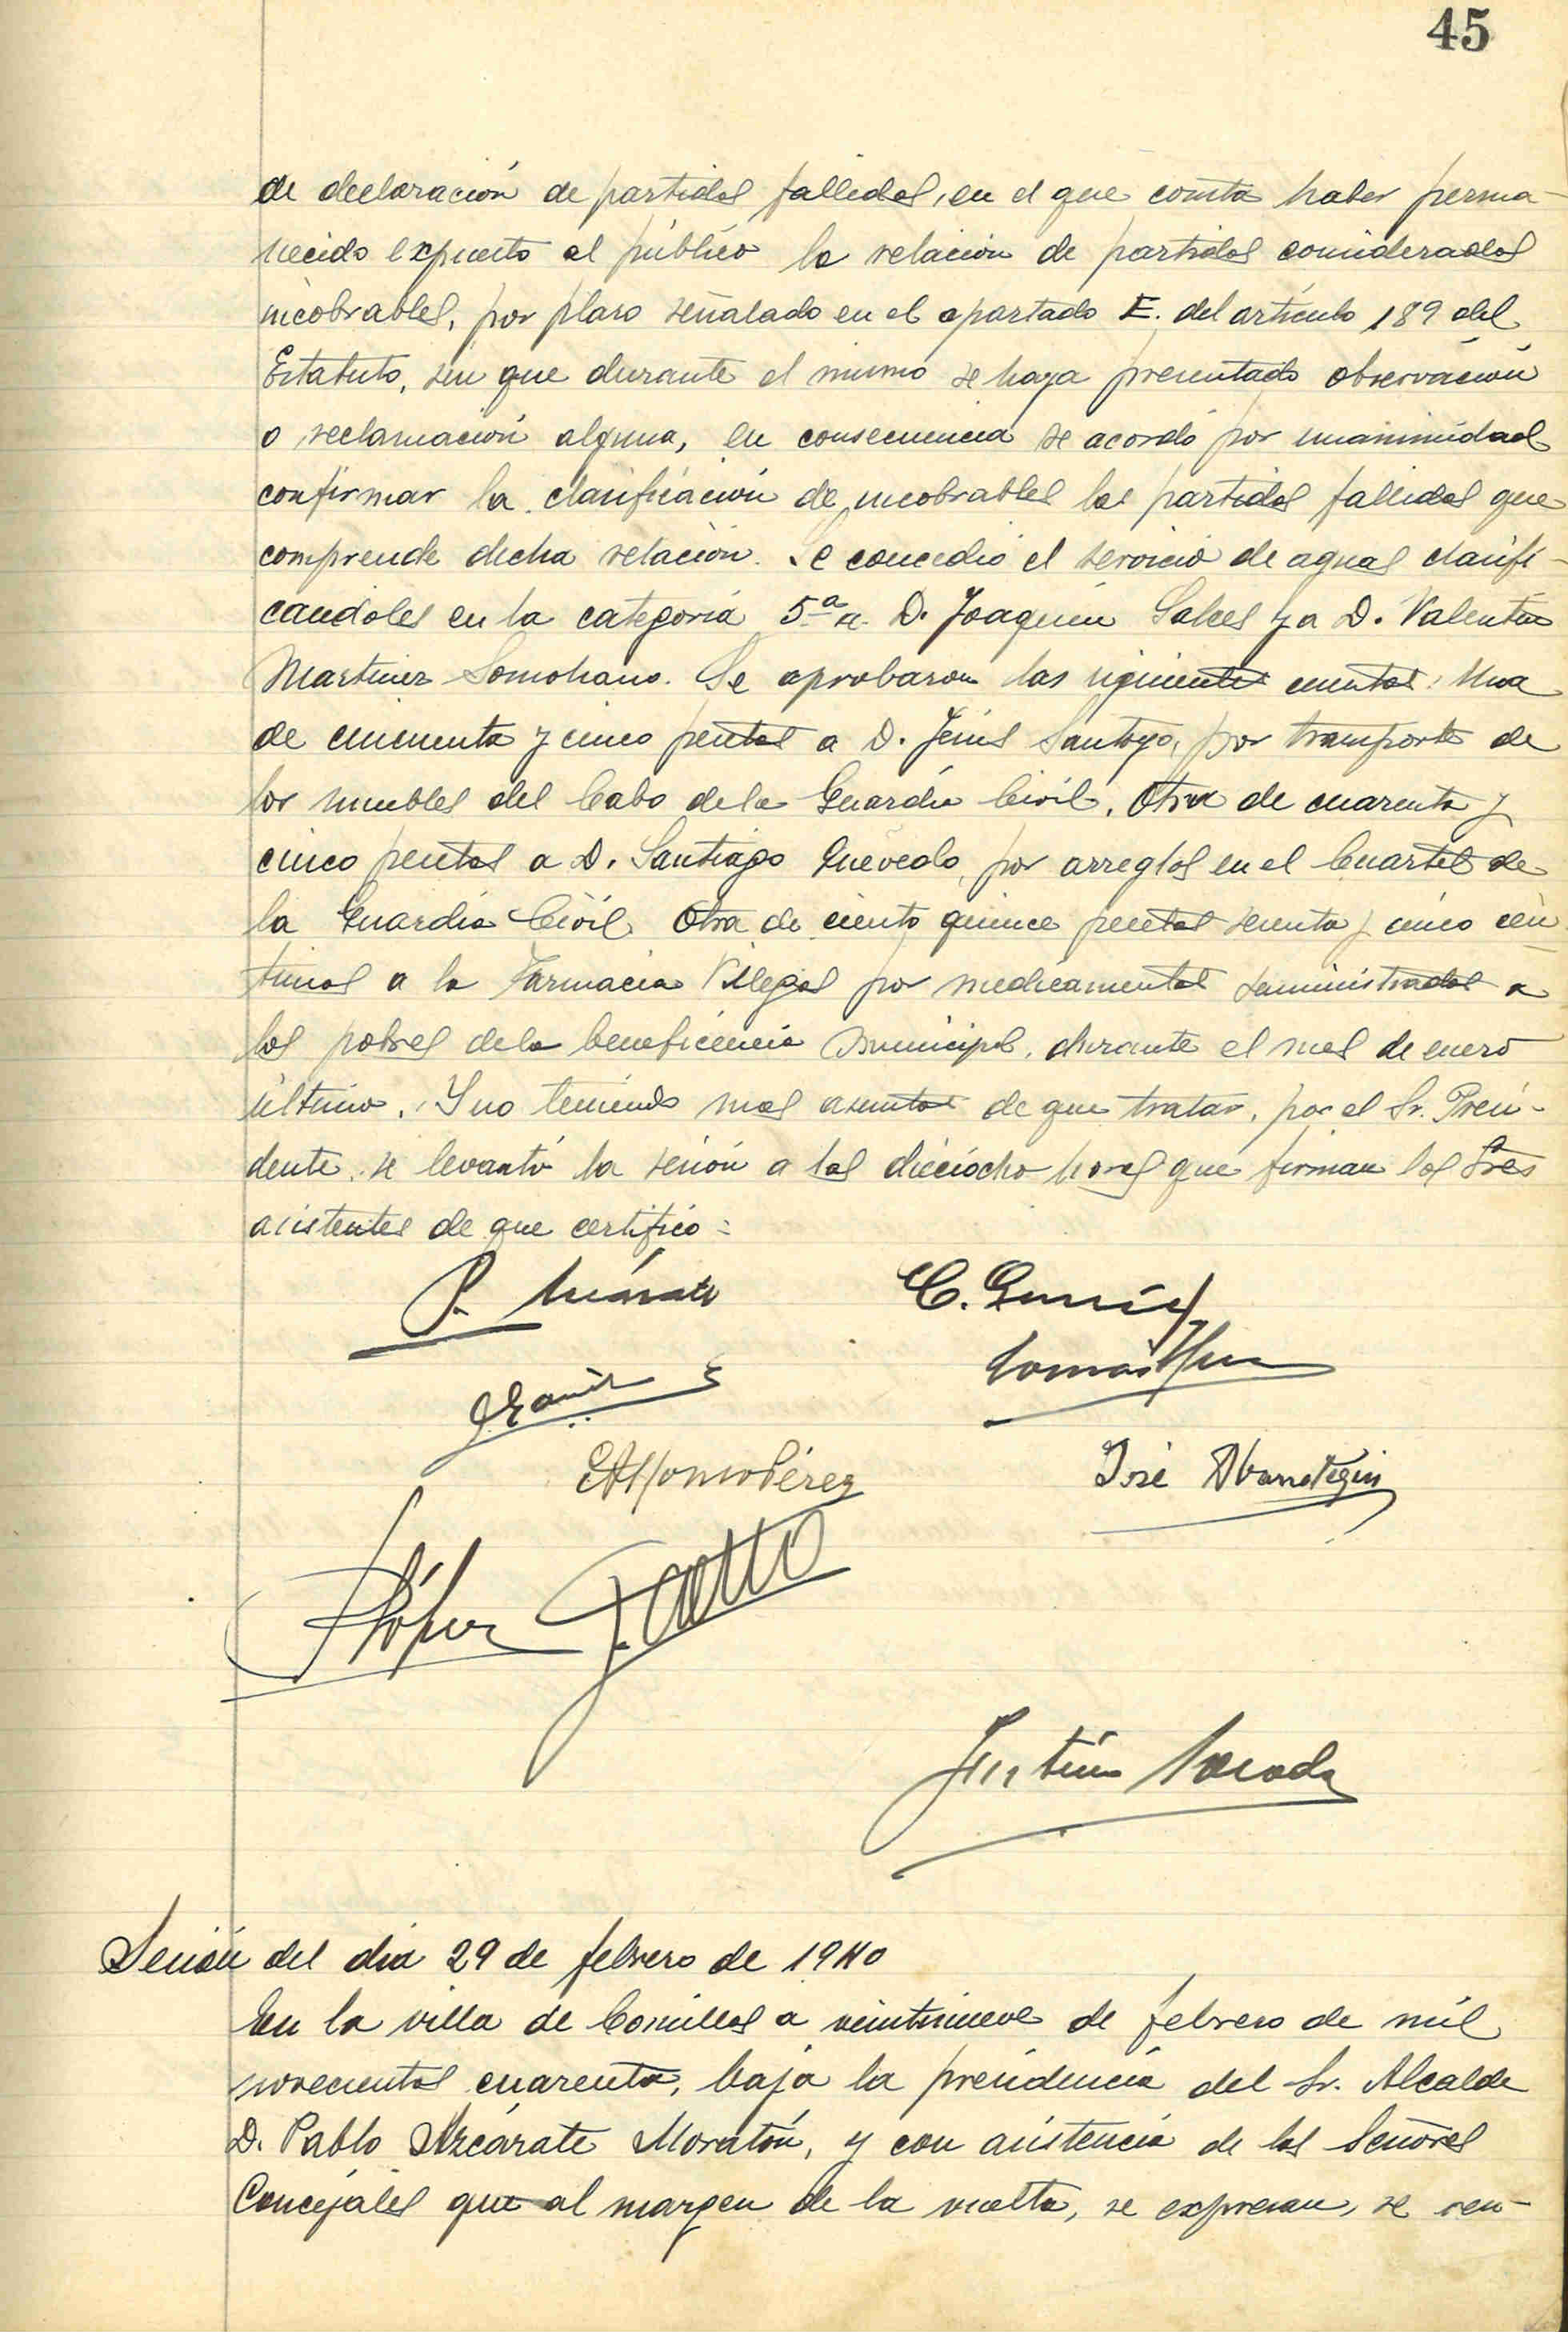 45
de declaración de partidas fallidas, en el que consta haber perma-
necido expuesto al público la relación de partidas consideradas
incobrables, por plazo señalado en el apartado E. del artículo 189 del
Estatuto, sin que durante el mismo se haya presentado observación
o reclamación alguna, en consecuencia se acordó por unanimidad
confirmar la clasificación de incobrables las partidas fallidas que
comprende dicha relación. Se concedió el servicio de aguas clasifi-
candoles en la categoría 5ª a D. Joaquín Salces y a D. Valentín
Martinez Somohano. Se aprobaron las siguientes cuentas: Una
de cincuenta y cinco pesetas a D. Jesús Santoyo, por transporte de
los muebles del Cabo de la Guardia Civil. Otra de cuarenta y
cinco pesetas a D. Santiago Quevedo, por arreglos en el Cuartel de
la Guardia Civil. Otra de ciento quince pesetas sesenta y cinco cen-
timos a la Farmacia Villegas por medicamentos suministrados a
los pobres de la beneficencia municipal, durante el mes de enero
último. Y no teniendo mas asuntos de que tratar, por el Sr. Presi-
dente, se levantó la sesión a las dieciocho horas que firman los Sres
asistentes de que certifico=
P. Azcárate C. García
E. Alfonso Pérez José Abarrategui
P López
Justino
Sesión del dia 29 de febrero de 1940
En la villa de Comillas a veintinueve de febrero de mil
novecientos cuarenta, baja la presidencia del Sr. Alcalde
D. Pablo Azcárate Moratón, y con asistencia de los Señores
Concejales que al margen de la vuelta, se expresan, se reu-